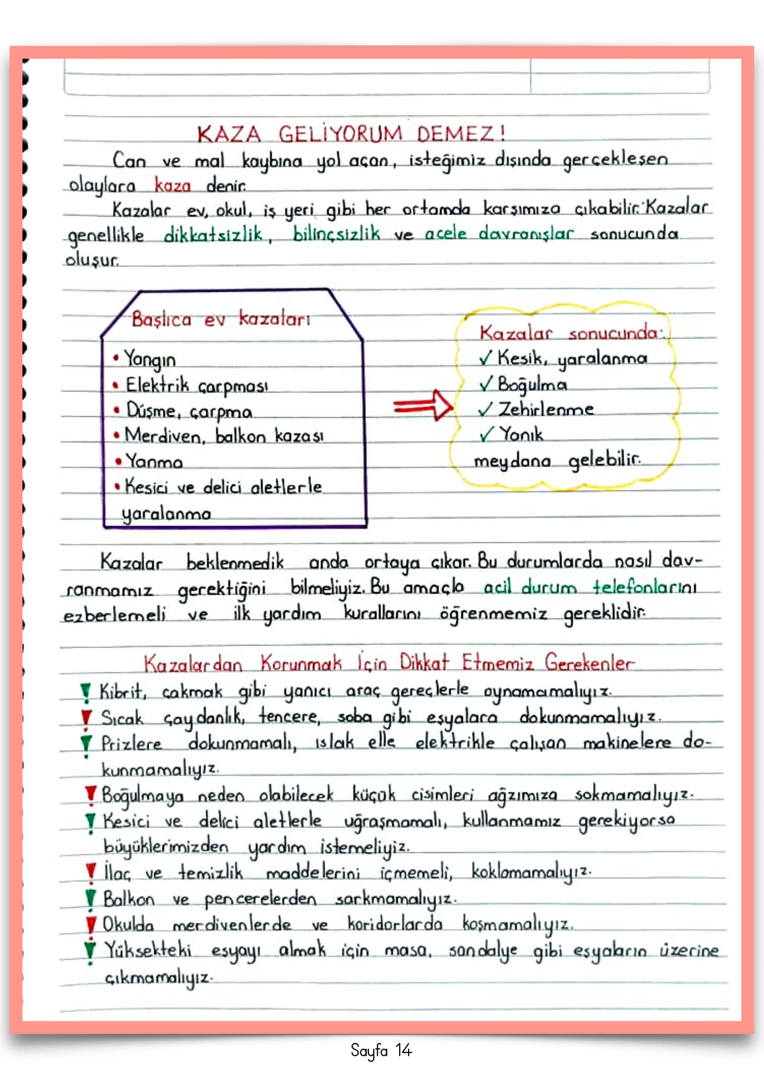 KAZA GELİYORUM DEMEZ!
Can ve mal kaybına yol açan, isteğimiz dışında gerçekleşen
olaylara kaza denir.
Kazalar ev, okul, iş yeri gibi her ortamda karşımıza çıkabilir. Kazalar
genellikle dikkatsizlik, bilinçsizlik ve acele davranışlar sonucunda
oluşur.
Başlıca ev kazaları
• Yangın
• Elektrik çarpması
• Düşme, çarpma
• Merdiven, balkon kazası
• Yanma
• Kesici ve delici aletlerle
yaralanma
Kazalar sonucunda:
✓ Kesik, yaralanma
✓ Boğulma
✓ Zehirlenme
✓ Yanık
meydana gelebilir.
Kazalar beklenmedik anda ortaya çıkar. Bu durumlarda nasıl dav-
ranmamız gerektiğini bilmeliyiz. Bu amaçla acil durum telefonlarını
ezberlemeli ve ilk yardım kurallarını öğrenmemiz gereklidir.
Kazalardan Korunmak İçin Dikkat Etmemiz Gerekenler
! Kibrit, çakmak gibi yanıcı araç gereçlerle oynamamalıyız.
! Sıcak çaydanlık, tencere, soba gibi eşyalara dokunmamalıyız.
! Prizlere dokunmamalı, ıslak elle elektrikle çalışan makinelere do-
kunmamalıyız.
! Boğulmaya neden olabilecek küçük cisimleri ağzımıza sokmamalıyız.
! Kesici ve delici aletlerle uğraşmamalı, kullanmamız gerekiyorsa
büyüklerimizden yardım istemeliyiz.
! İlaç ve temizlik maddelerini içmemeli, koklamamalıyız.
! Balkon ve pencerelerden sarkmamalıyız.
! Okulda merdivenlerde ve koridorlarda koşmamalıyız.
! Yüksekteki eşyayı almak için masa, sandalye gibi eşyaların üzerine
çıkmamalıyız.
Sayfa 14